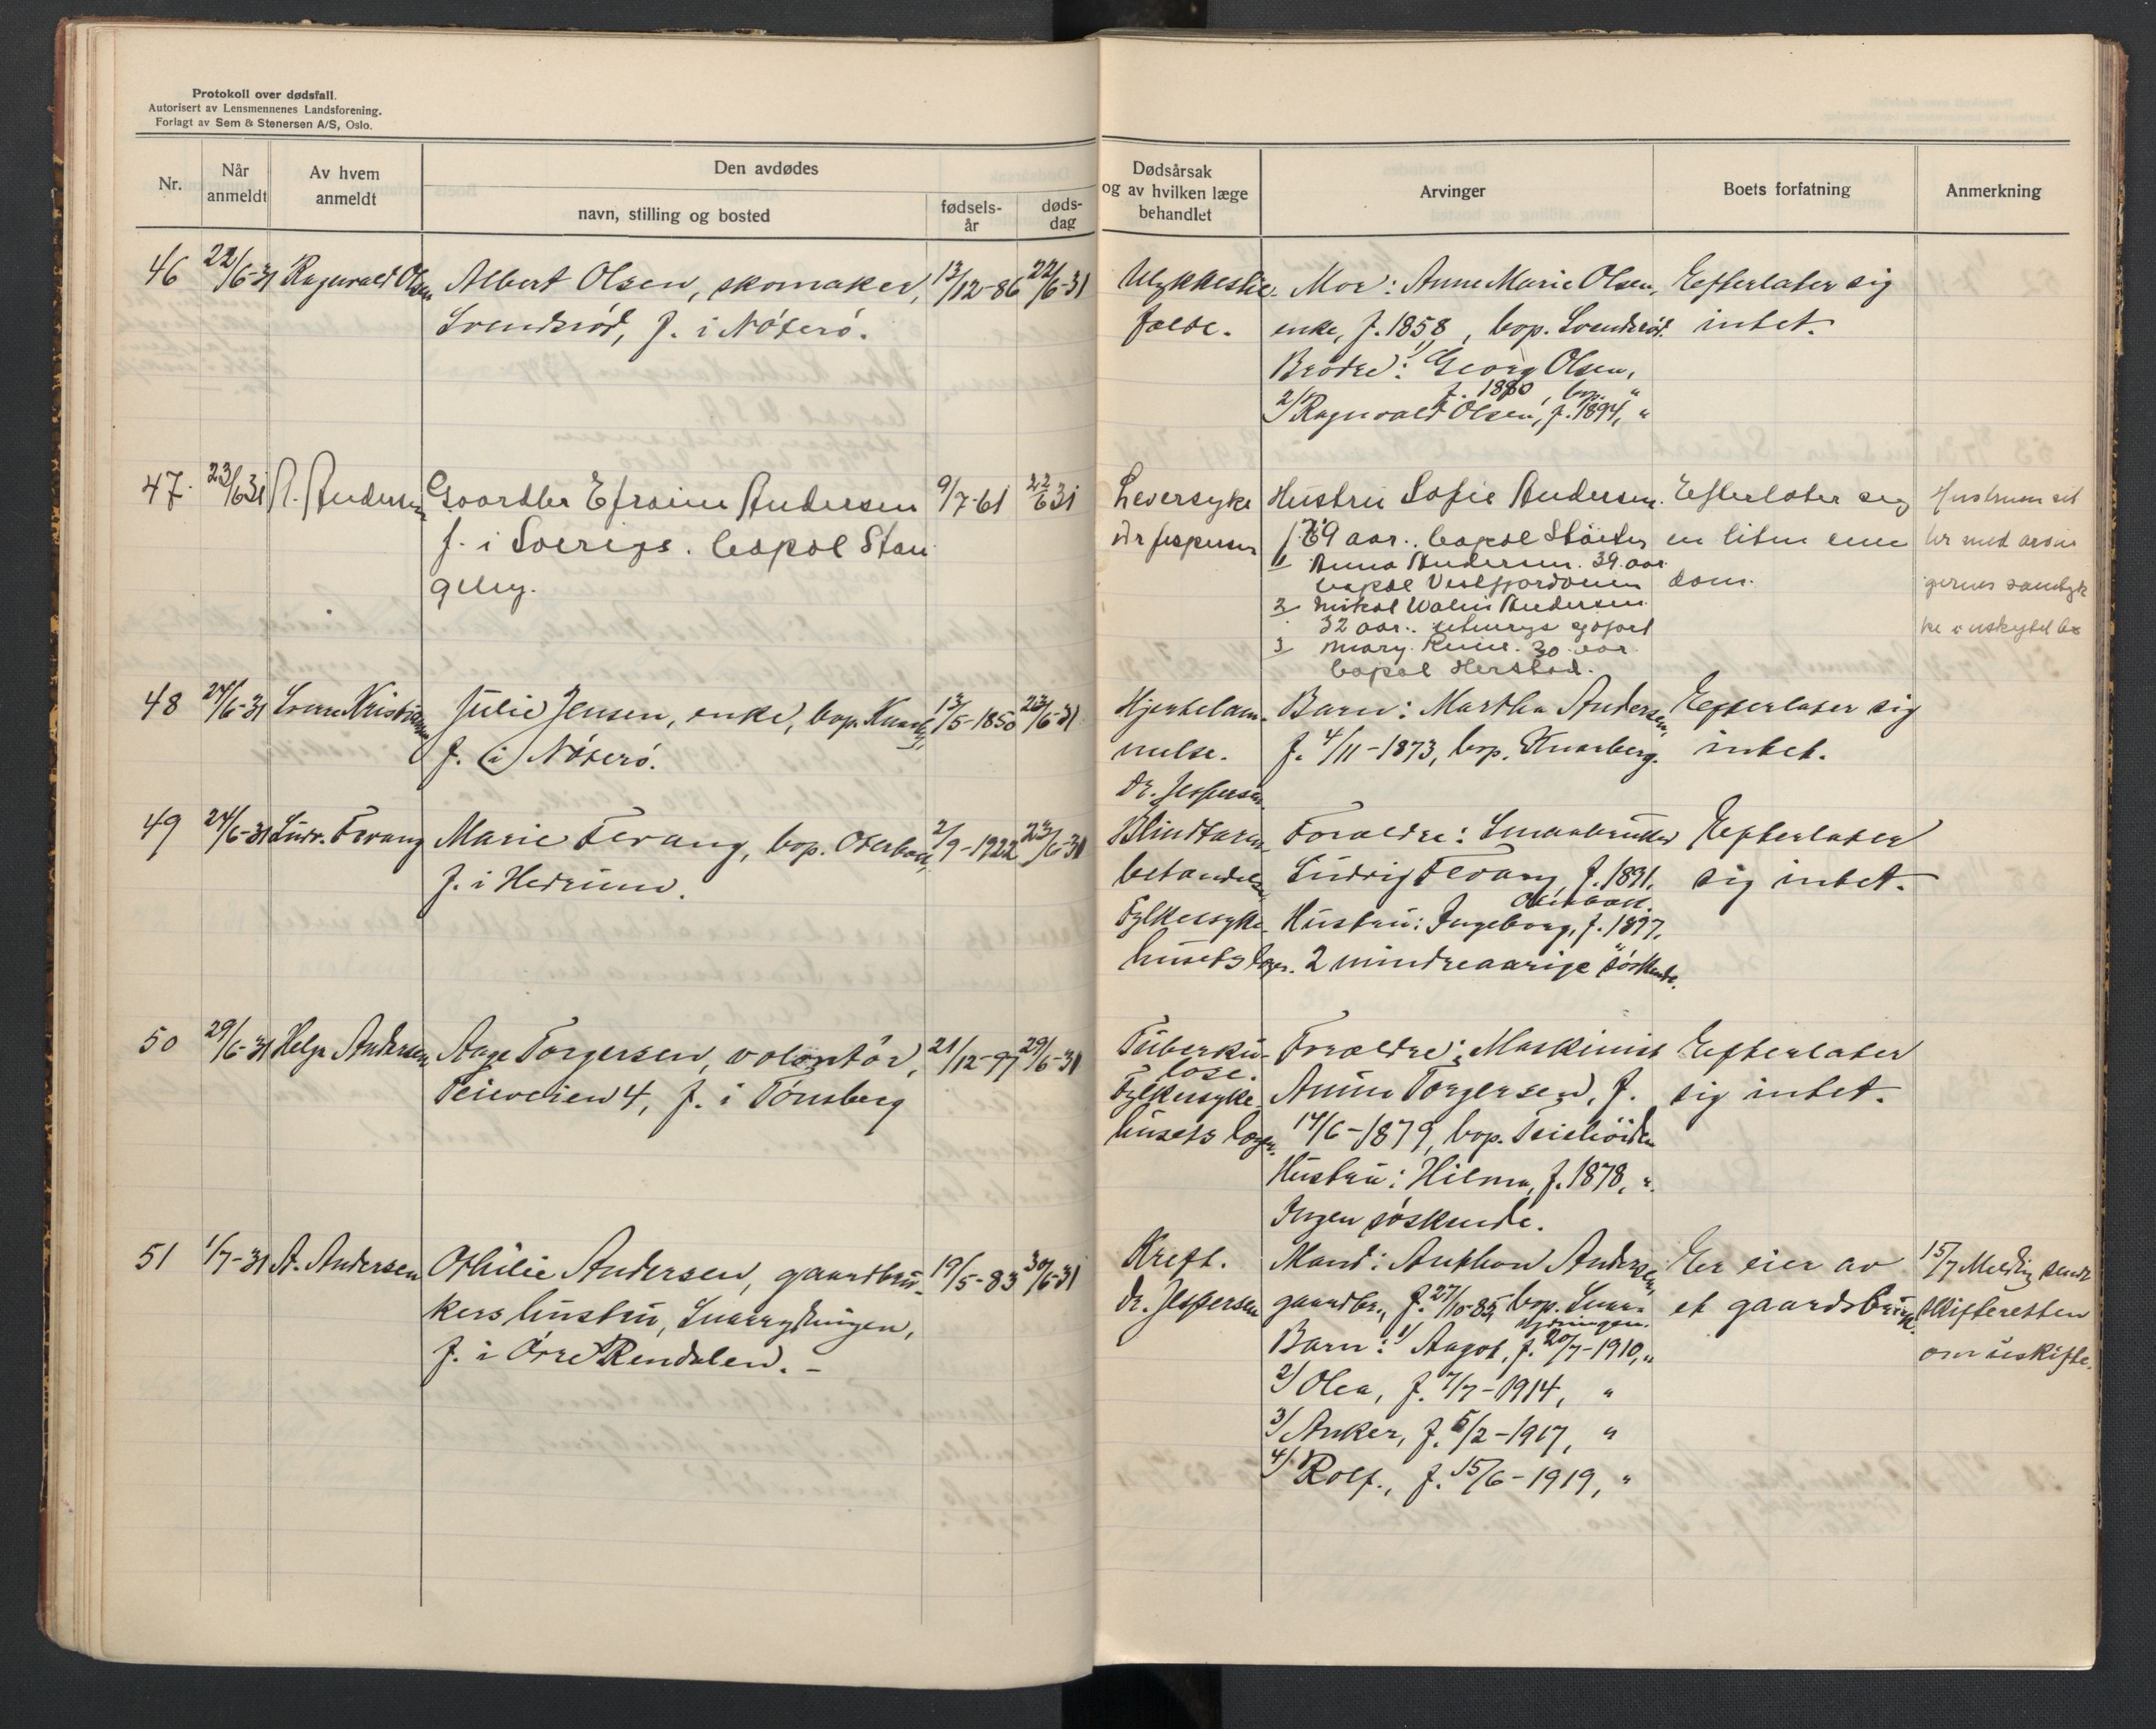 Protokoll over dødsfall.
Autorisert av Lensmennenes Landsforening.
Forlagt av Sem & Stenersen A/S, Oslo.
Nr.
Når anmeldt
Av hvem anmeldt
Den avdødes
navn, stilling og bosted
fødsels-
år
døds-
dag
Dødsårsak
og av hvilken læge
behandlet
Arvinger
Boets forfatning
Anmerkning
46 22/6-31 Ragnvald Olsen Albert Olsen, skomaker, 13/12-86 22/6-31
Svendsrød, f. i Nøterø.
Ulykkestil-
fælde.
Mor: Anne Marie Olsen,
enke, f. 1858, bop. Svendsrød.
Brødre: 1/ Georg Olsen,
f. 1880, bop. "
2/ Ragnvald Olsen, f. 1894, "
Efterlater sig
intet.
47 23/6 31 A. Andersen Gaardbr Efraim Andersen 9/7-61 22/6 31
f. i Sverige. bopæl
Leversyke
Dr Jespersen
Hustru Sofie Andersen.
69 aar.. bopæl
1 Anna Andersen. 39 aar
bopæl
2
32 aar..
3 Mary 30 aar
bopæl Herstad.
Efterlater sig
en liten eien
dom.
Hustruen sit
ter med arvin
gernes samtyk
ke i uskiftet bo
48 24/6-31 Julie Jensen, enke, bop. Knarberg, 13/5-1850 23/6-31
f. (i) Nøterø.
Hjertelam-
melse.
Dr. Jespersen
Barn: Martha Andersen,
f. 4/11-1873, bop. Knarberg.
Efterlater sig
intet.
49 24/6-31 Ludv. Fevang Marie Fevang, bop. Oterbæk, 2/9-1922 23/6-31
f. i Hedrum.
Blindtarm-
betændelse
Fylkessyke-
husets læger.
Forældre: Smaabruker
Ludvig Fevang, f. 1891,
Oterbæk.
Hustru: Ingeborg, f. 1897,
2 mindreaarige søskende.
Efterlater
sig intet.
50 29/6-31 Helge Andersen Aage Torgersen, volontør, 21/12-97 29/6-31
Teieveien 4, f. i Tønsberg
Tuberku-
lose.
Fylkessyke-
husets læger.
Forældre: Maskinist
Torgersen, f.
14/6-1879, bop. Teiehøiden
Hustru: Hilma, f. 1878, "
Ingen søskende.
Efterlater
sig intet.
51 1/7-31 A. Andersen Othilie Andersen, gaardbru- 19/5-83 30/6-31
kers hustru, Snarrydningen,
f. i Øvre Rendalen. -
Kreft.
Dr. Jespersen
Mand: Anthon Andersen,
gaardbr., f. 27/10-85, bop. Snar-
rydningen.
Barn: 1/ Aagot, f. 20/7-1910, "
2/ Olea, f. 7/7-1914, "
3/ Anker, f. 5/2-1917, "
4/ Rolf., f. 15/6-1919, "
Er eier av
et gaardsbruk.
15/7 Melding sendt
skifteretten
om uskifte.